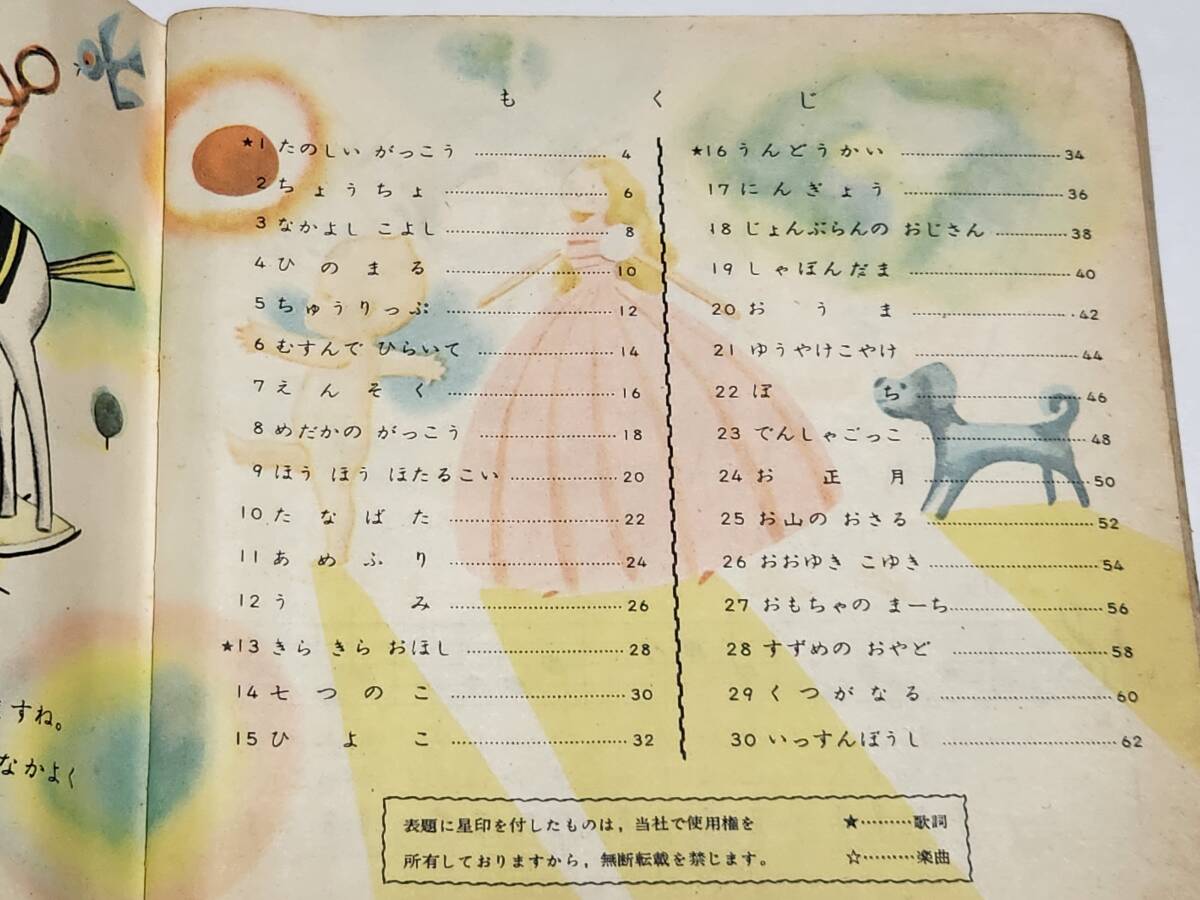 もくじ
★1 たのしい がっこう ……… 4
2 ちょうちょ ……… 6
3 なかよし こよし ……… 8
4 ひのまる ……… 10
5 ちゅうりっぷ ……… 12
6 むすんで ひらいて ……… 14
7 えんそく ……… 16
8 めだかの がっこう ……… 18
9 ほう ほう ほたるこい ……… 20
10 たなばた ……… 22
11 あめふり ……… 24
12 うみ ……… 26
★13 きら きら おほし ……… 28
14 七つのこ ……… 30
15 ひよこ ……… 32
★16 うんどうかい ……… 34
17 にんぎょう ……… 36
18 じょんぶらんの おじさん ……… 38
19 しゃぼんだま ……… 40
20 おうま ……… 42
21 ゆうやけこやけ ……… 44
22 ぽち ……… 46
23 でんしゃごっこ ……… 48
24 お正月 ……… 50
25 お山の おさる ……… 52
26 おおゆき こゆき ……… 54
27 おもちゃの まーち ……… 56
28 すずめの おやど ……… 58
29 くつがなる ……… 60
30 いっすんぼうし ……… 62
表題に星印を付したものは，当社で使用権を
所有しておりますから，無断転載を禁じます。
★………歌詞
☆………楽曲
すね。
なかよく